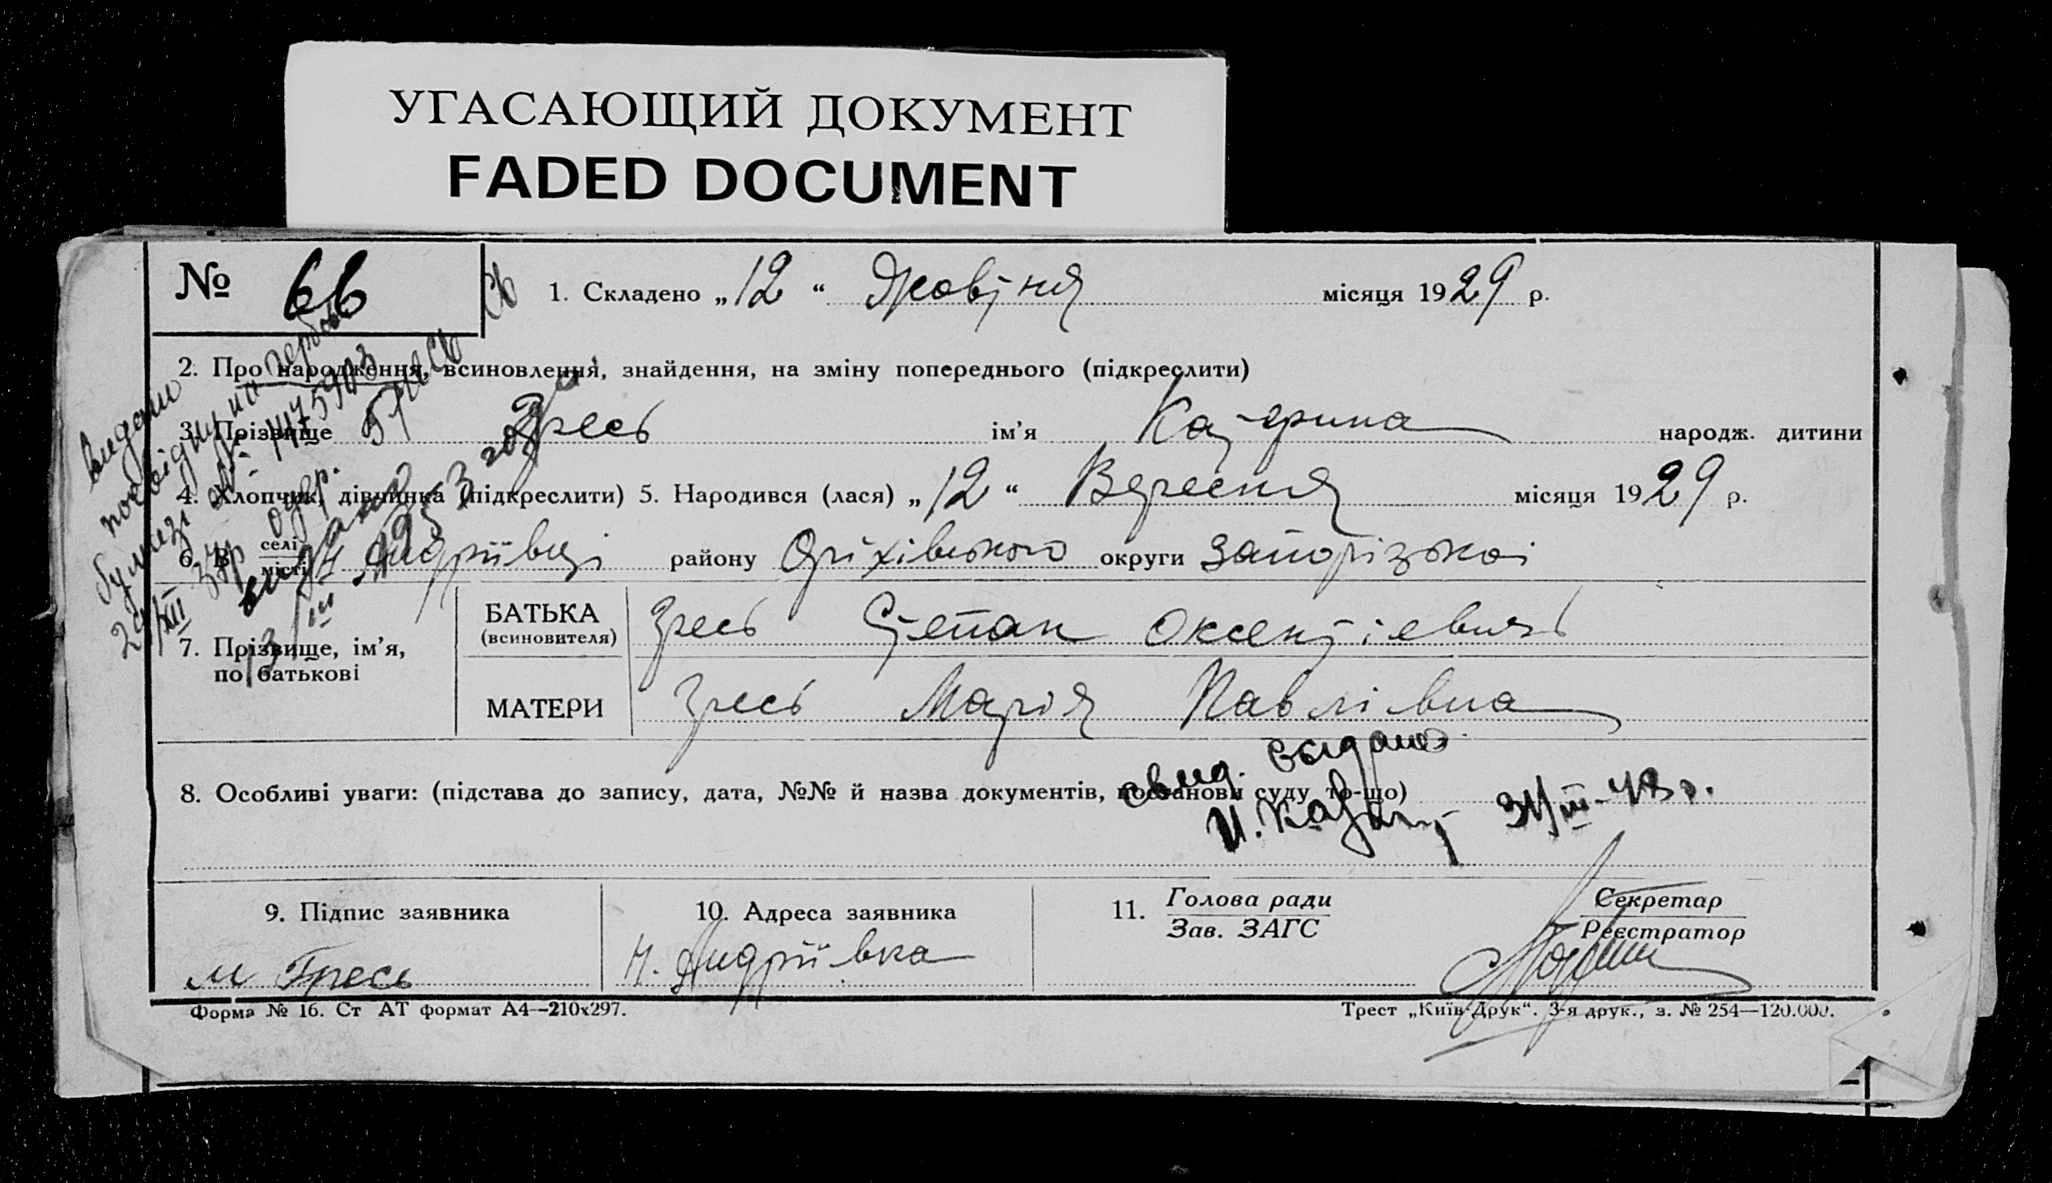 УГАСАЮЩИЙ ДОКУМЕНТ
FADED DOCUMENT
№ 66
1. Складено „12“ Жовтня місяця 1929 р.
2. Про народження, всиновлення, знайдення, на зміну попереднього (підкреслити)
3. Прізвище Гресь ім’я Катерина народж. дитини
4. Хлопчик, дівчинка (підкреслити) 5. Народився (лася) „12“ Вересня місяця 1929 р.
6. В селі місті Н Андріївці району Оріхівського округи Запорізької
7. Прізвище, ім’я, по батькові
БАТЬКА (всиновителя) Гресь Степан Оксентієвичь
МАТЕРИ Гресь Марія Павлівна
8. Особливі уваги: (підстава до запису, дата, №№ й назва документів, постанови суду то-що)
свид. выдано
31/III-43 р.
9. Підпис заявника
м Гресь
10. Адреса заявника
Н. Андріївка
11. Голова ради
Зав. ЗАГС
Секретар
Реєстратор
Форма № 16. Ст АТ формат А4—210х297.
Трест „Київ-Друк“. 3-я друк., з. № 254—120.000.
видано
посвідку на
бумазі №